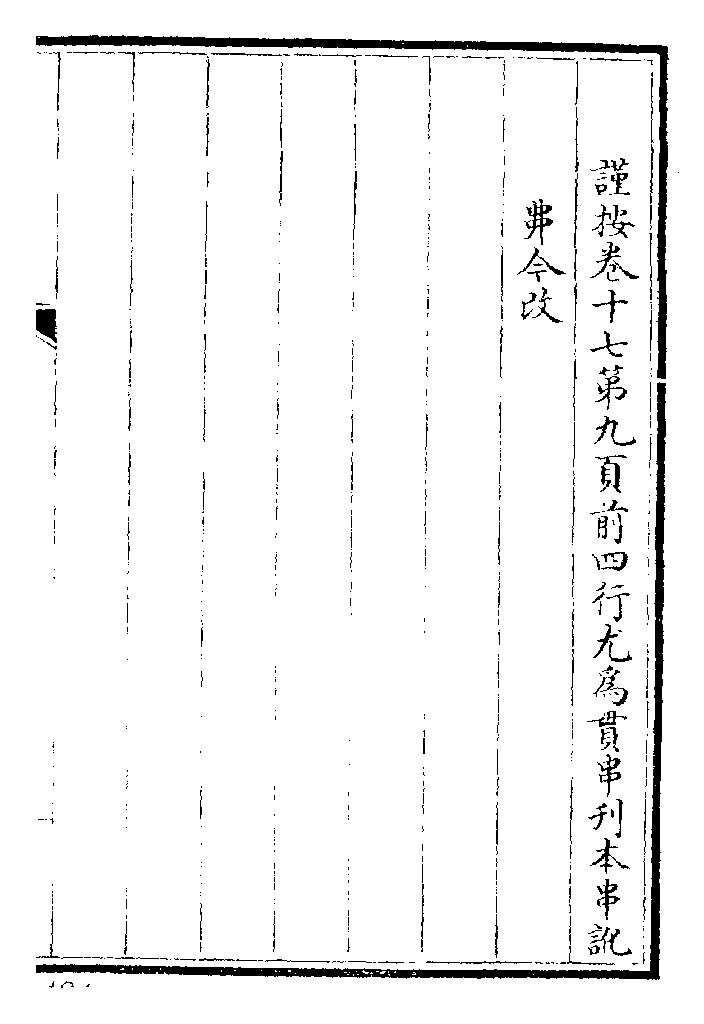 謹按卷十七第九頁前四行尤為貫串刊本串訛
丳今改